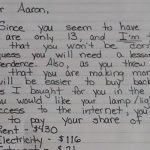 r Aaron,
Since you seem to have
are only 13, and I'm
that you won't be
guess you will need a lesson
pendence. Also, as you threw
that you are making mon
will be easier to buy back
s I bought for you in the
you would like your lamp/lig
ccess to the internet, you'
to pay your share of
Rent - $430
Electricity - $116
- $21